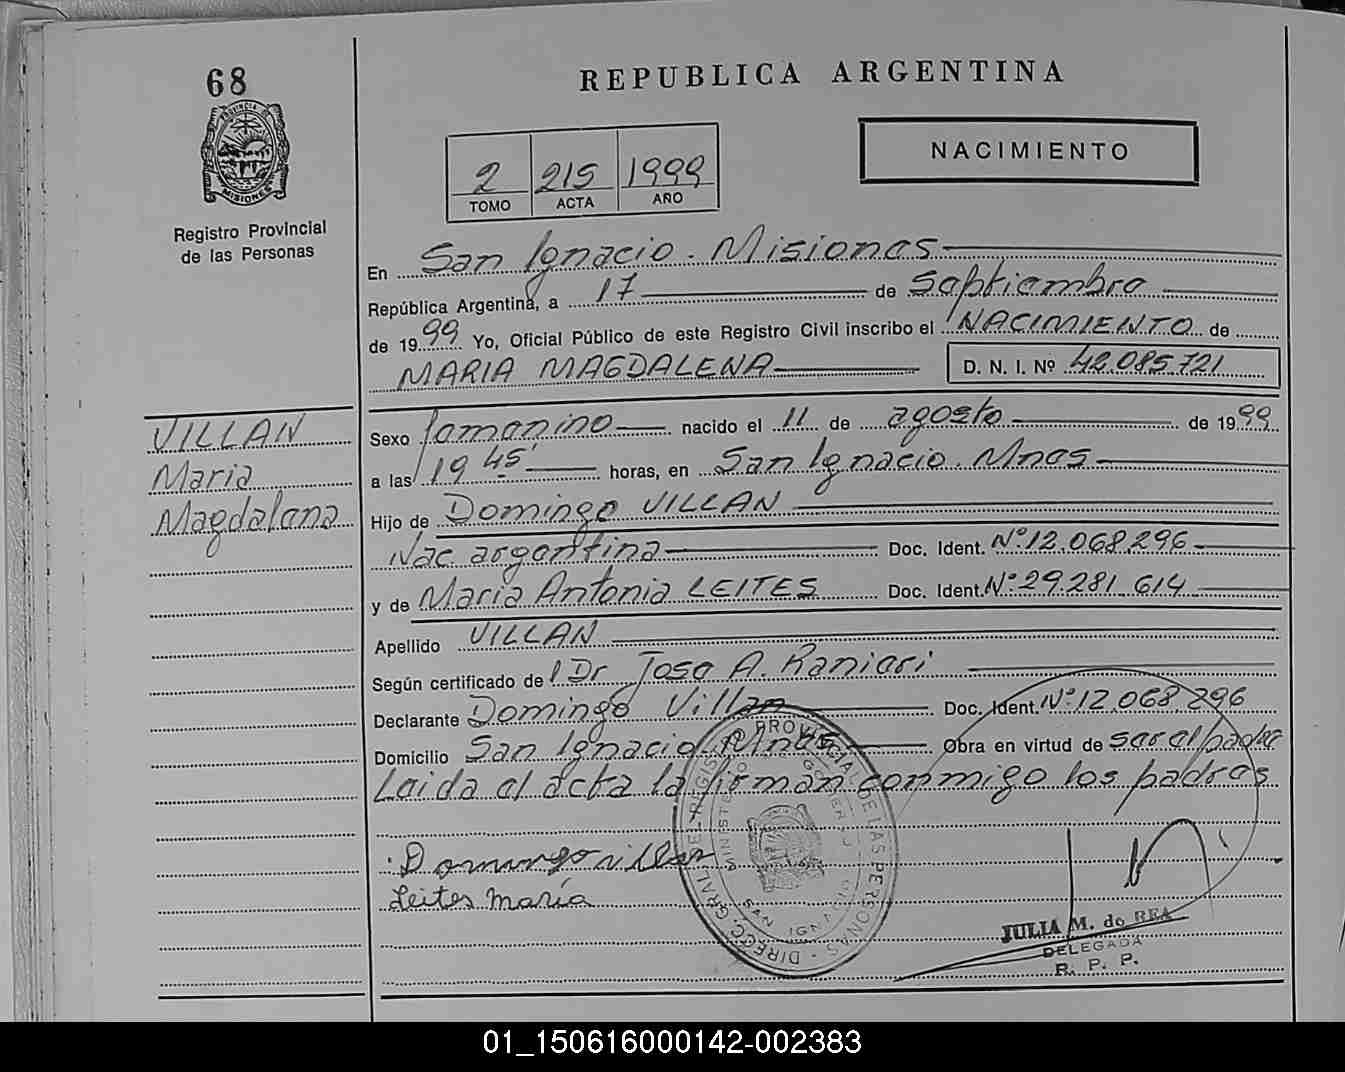 68
REPUBLICA ARGENTINA
PROVINCIA DE
MISIONES
Registro Provincial
de las Personas
2 215 1999
TOMO ACTA AÑO
NACIMIENTO
En San Ignacio. Misiones
República Argentina, a 17 de Septiembre
de 1999 Yo, Oficial Público de este Registro Civil inscribo el NACIMIENTO de
MARIA MAGDALENA D. N. I. Nº 42.085.721
VILLAN
Maria
Magdalena
Sexo femenino nacido el 11 de agosto de 1999
a las 19 45' horas, en San Ignacio. Mnes
Hijo de Domingo VILLAN
Nac. argentina Doc. Ident. Nº 12.068.296
y de Maria Antonia LEITES Doc. Ident. Nº 29.281.614
Apellido VILLAN
Según certificado de l Dr Jose A. Ranieri
Declarante Domingo Villan Doc. Ident. Nº 12.068.296
Domicilio San Ignacio. Mnes Obra en virtud de ser el padre
Leida el acta la firman conmigo los padres
Domingo villan
Leites María
DIRECC. GRAL. DEL REGISTRO PROVINCIAL DE LAS PERSONAS
MINISTERIO DE GOBIERNO
SAN IGNACIO
JULIA M. de REA
DELEGADA
R. P. P.
01_150616000142-002383